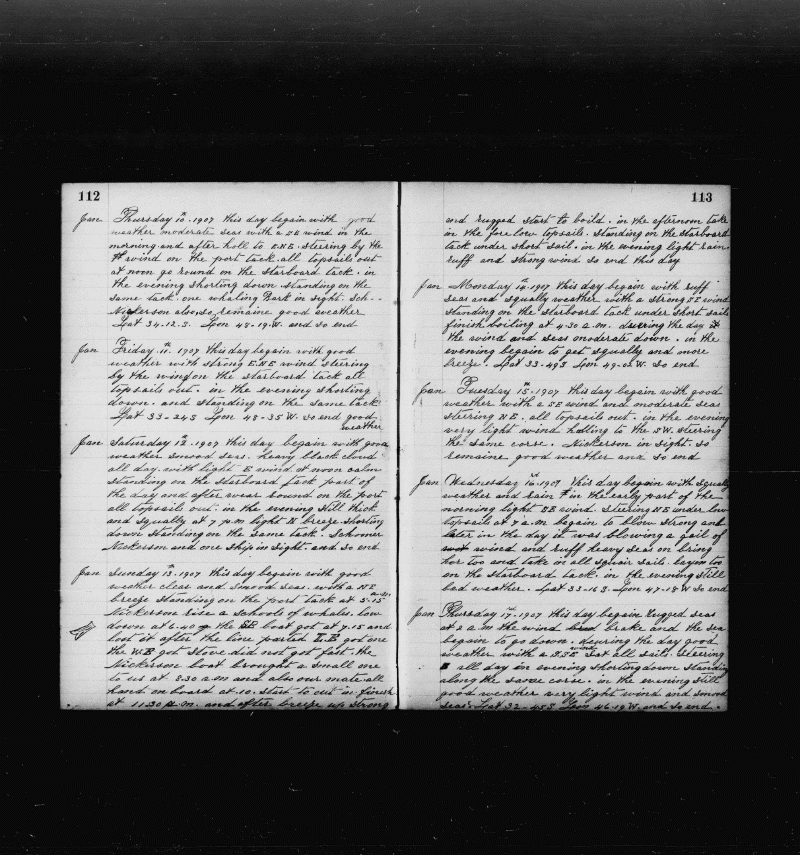 112
Jan Thursday 10th 1907 this day begain with good
weather moderate seas with a SE wind in the
morning and after holl to E.N.E. steering by the
wind on the port tack all topsails out
at noon go round on the starboard tack. in
the evening shorting down standing on the
same tack. one whaling Bark in sight. Sch..
Nickerson also so remaine good weather
Lat 34.12.S. Lon 48-19.W. and so end
Jan Friday 11th 1907 this day begain with good
weather with strong E.N.E wind steering
by the wind on the starboard tack all
topsails out. in the evening shorting
down. and standing on the same tack
Lat 33-24S Lon 48-35 W. so end good
weather
Jan Saturday 12th 1907 this day begain with good
weather smood seas. heavy black cloud
all day. with light E wind at noon calm
standing on the starboard tack part of
the day and after wear round on the port
all topsails out. in the evening still thick
and squally at 7 p.m light N breeze shorting
down standing on the same tack. Schooner
Nickerson and one ship in sight. and so end
Jan Sunday 13th 1907 this day begain with good
weather clear and smood seas. with a NE
breeze standing on the port tack at 5-15 a.m.
Nickerson rise a schools of whales low
down at 6.40 the boat got at 7.15 and
lost it after the line parted L.B got one
the W.B got stove did not got fast. the
Nickerson boat brought a small one
to us at 8.30 a m and also our mate all
hand on board at 10. start to cut in finish
at 11.30 p.m. and after breeze up strong
113
and rugged start to boild. in the afternoon take
in the fore low topsails. standing on the starboard
tack under short sail. in the evening light rain.
ruff and strong wind so end this day
Jan Monday 14th 1907 this day begain with ruff
seas and squally weather with a strong SE wind
standing on the starboard tack under short sails
finish boiling at 4.30 a m. during the day
the wind and seas moderate down. in the
evening begain to get squally and more
breeze. Lat 33-49S Lon 49-02 W. so end
Jan Tuesday 15th 1907 this day begain with good
weather with a SE wind and moderate seas
steering NE. all topsails out. in the evening
very light wind holling to the SW. steering
the same corse. Nickerson in sight. so
remaine good weather and so end
Jan Wednesday 16th 1907 this day begain with squally
weather and rain in the early part of the
morning light SE wind. steering NE under low
topsails at 7 a.m. begain to bllow strong and
later in the day it was blowing a gail of
wind and ruff heavy seas on bring
her too and take in all squair sails. layin too
on the starboard tack. in the evening still
bad weather. Lat 33-16 S. Lon 47-19 W so end
Jan Thursday 17th 1907 this day begain rugged seas
at 2 a m the wind brake and the sea
begain to go down. during the day good
weather with a S.S.E. wind set all sails. steering
all day in evening shorting down standing
along the same corse. in the evening still
good weather very light wind and smood
seas. Lat 32-45S Lon 46.19 W. and so end.